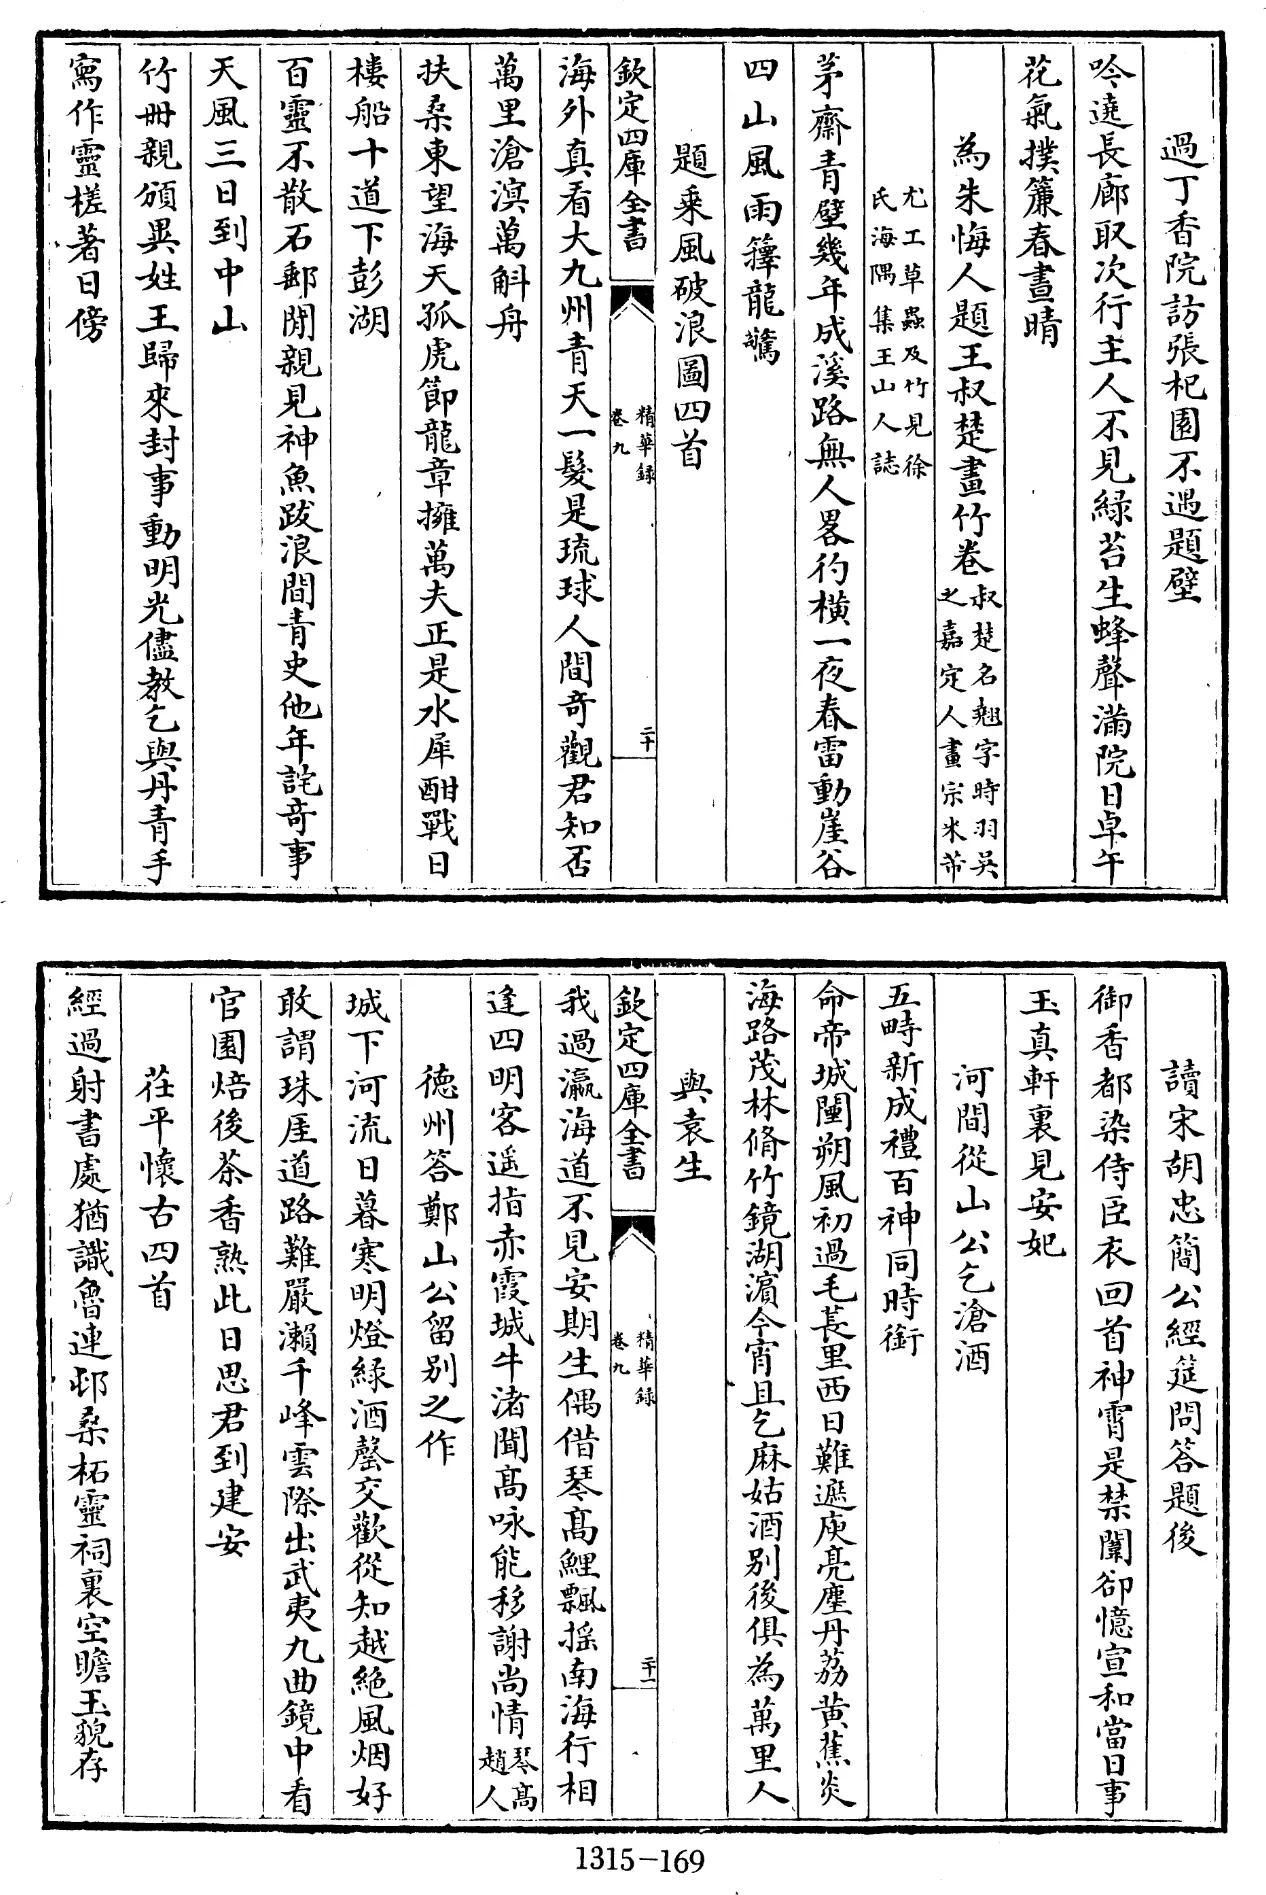 過丁香院訪張杞園不遇題壁
吟遶長廊取次行主人不見緑苔生蜂聲滿院日卓午
花氣撲簾春晝晴
為朱悔人題王叔楚畫竹卷叔楚名翹字時羽吳
之嘉定人畫宗米芾
尤工草蟲及竹見徐
氏海隅集王山人誌
茅齋青壁幾年成溪路無人畧彴橫一夜春雷動崖谷
四山風雨籜龍驚
題乘風破浪圖四首
欽定四庫全書
精華録
卷九
二十
海外真看大九州青天一髮是琉球人間奇觀君知否
萬里滄溟萬斛舟
扶桑東望海天孤虎節龍章擁萬夫正是水犀酣戰日
樓船十道下彭湖
百靈不散石郵閒親見神魚跋浪間青史他年詫奇事
天風三日到中山
竹冊親頒異姓王歸來封事動明光儘教乞與丹青手
寫作靈槎著日傍
讀宋胡忠簡公經筵問答題後
御香都染侍臣衣回首神霄是禁闈卻憶宣和當日事
玉真軒裏見安妃
河間從山公乞滄酒
五畤新成禮百神同時銜
命帝城闉朔風初過毛萇里西日難遮庾亮塵丹荔黄蕉炎
海路茂林脩竹鏡湖濵今宵且乞麻姑酒别後俱為萬里人
與袁生
欽定四庫全書
精華録
卷九
二十一
我過瀛海道不見安期生偶借琴高鯉飄揺南海行相
逢四明客遥指赤霞城牛渚聞高咏能移謝尚情琴高
趙人
德州答鄭山公留别之作
城下河流日暮寒明燈緑酒罄交歡從知越絶風烟好
敢謂珠厓道路難嚴瀨千峰雲際出武夷九曲鏡中看
官園焙後茶香熟此日思君到建安
茌平懷古四首
經過射書處猶識魯連邨桑柘靈祠裏空瞻玉貌存
1315-169